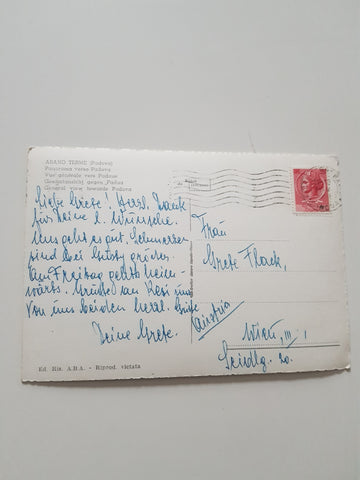 ABANO TERME (Padova)
Panorama verso Padova
Vue générale vers Padoue
Gesamtansicht gegen Padua
General view towards Padova
Liebe Grete! Herzl. Dank
für Deine l. Wünsche.
Uns geht es gut. Schmerzen
sind bei
Am Freitag gehts heim-
wärts. Grüße an Resi und
von uns beiden herzl. Grüße
Deine Grete.
Frau
Grete Flack,
Austria
Wien, III,
Seidlg. 20.
Ed. Ris. A.B.A. - Riprod. vietata